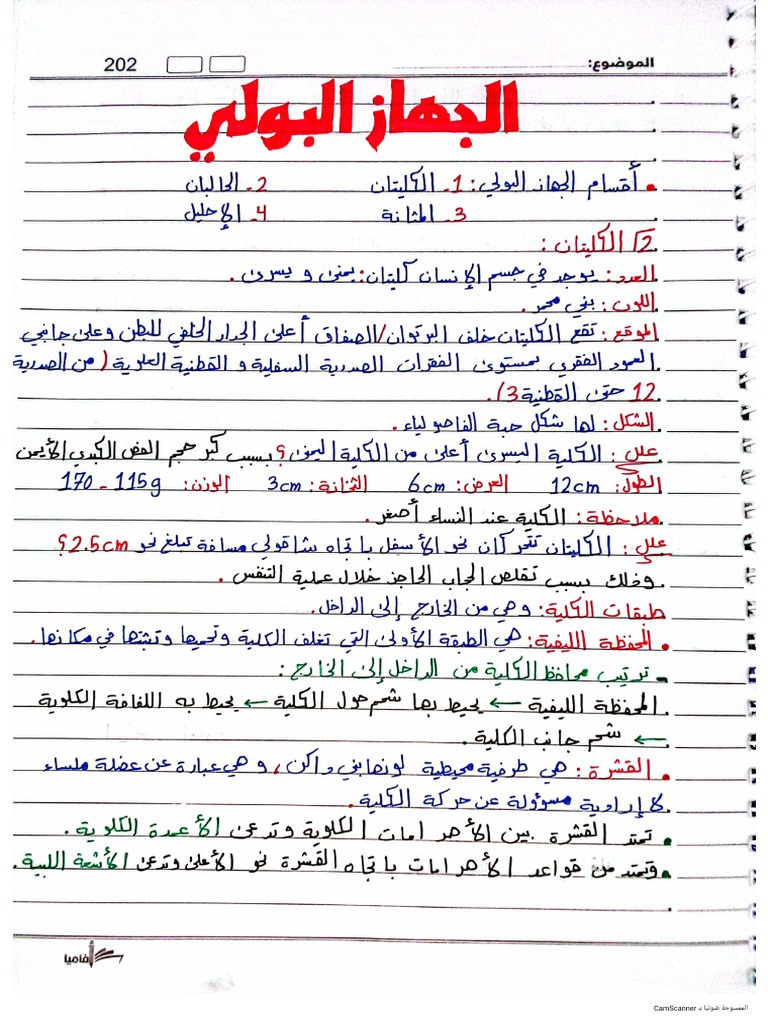 الموضوع: 202
الجهاز البولي
• أقسام الجهاز البولي: 1- الكليتان 2- الحالبان
3- المثانة 4- الإحليل
2| الكليتان:
العدد: يوجد في جسم الإنسان كليتان: يمنى ويسرى.
اللون: بني محمر.
الموقع: تقع الكليتان خلف البرتوان/الصفاق أعلى الجدار الخلفي للبطن وعلى جانبي
العمود الفقري بمستوى الفقرات الصدرية السفلية و القطنية العلوية (من الصدرية
12 حتى القطنية 3).
الشكل: لها شكل حبة الفاصولياء.
علل: الكلية اليسرى أعلى من الكلية اليمنى؟ بسبب كبر حجم الفص الكبدي الأيمن
الطول: 12cm العرض: 6cm الثخانة: 3cm الوزن: 170 - 115g
ملاحظة: الكلية عند النساء أصغر.
علل: الكليتان تتحركان نحو الأسفل باتجاه شاقولي مسافة تبلغ نحو 2.5cm؟
وذلك بسبب تقلص الحجاب الحاجز خلال عملية التنفس.
طبقات الكلية: وهي من الخارج إلى الداخل.
• المحفظة الليفية: هي الطبقة الأولى التي تغلف الكلية وتحميها وتثبتها في مكانها.
• ترتيب محافظ الكلية من الداخل إلى الخارج:
المحفظة الليفية ← يحيط بها شحم حول الكلية ← يحيط به اللفافة الكلوية
← شحم جانب الكلية.
• القشرة: هي طرفية محيطية لونها بني داكن، وهي عبارة عن عضلة ملساء
لا إرادية مسؤولة عن حركة الكلية.
• تمتد القشرة بين الأهرامات الكلوية وتدعى الأعمدة الكلوية.
• وتمتد من قواعد الأهرامات باتجاه القشرة نحو الأعلى وتدعى الأشعة اللبية.
فاميا
الممسوحة ضوئيا بـ CamScanner